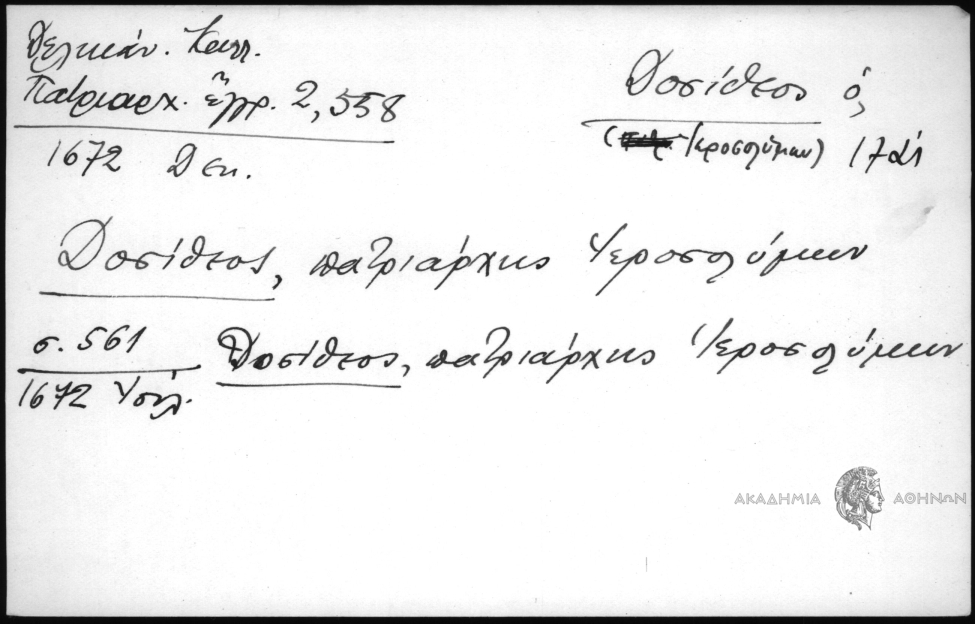 Δελικάν. Καλλ.
Πατριαρχ. ἔγγρ. 2, 558
1672 Δεκ.
Δοσίθεος ὁ,
( Ἱεροσολύμων) 17α1
Δοσίθεος, πατριάρχης Ἱεροσολύμων
σ. 561 Δοσίθεος, πατριάρχης Ἱεροσολύμων
1672 Ἰούλ.
ΑΚΑΔΗΜΙΑ ΑΘΗΝΩΝ